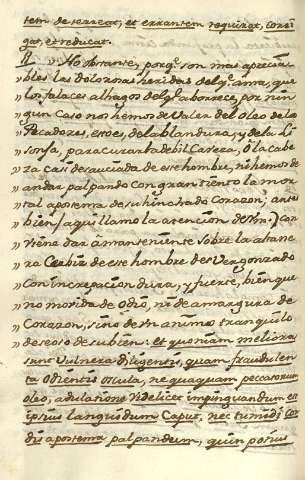 tem deterreat, et errantem requirat, corri
gat, et reducat.
„ No obstante, porq.e son mas aprecia
„ bles las dolorosas heridas del q.e ama, que
„ los falaces alhagos del q.e aborrece, por nin
„ gun Caso nos hemos de Valer del óleo de los
„ Pecadores, esto es, de la blandura, y de la Li
„ sonja, para curar la debil Caveza, ó la cabe
„ za casi desauciada de ese hombre, ni hemos de
„ andar palpando con gran tiento la mor
„ tal apostema de su hinchado Corazon; antes
„ bien (aqui llamo la atencion de Vm.) con
„ viene dar á manteniente sobre la altane
„ ra Cerbiz de ese hombre desvergonzado
„ con increpacion dura, y fuerte, bien que
„ no movida de Odio, ni de amargura de
„ Corazon, sino de Un animo tranquilo
„ deseoso de su bien: et quoniam meliora
sunt Vulnera diligentis, quam fraudulen
ta Odientis oscula, nequaquam peccatorum
oleo, adulatione videlicet impinguandum est
ipsius languidum Caput, nec tumidi cor
dis apostema palpandum, quin potius